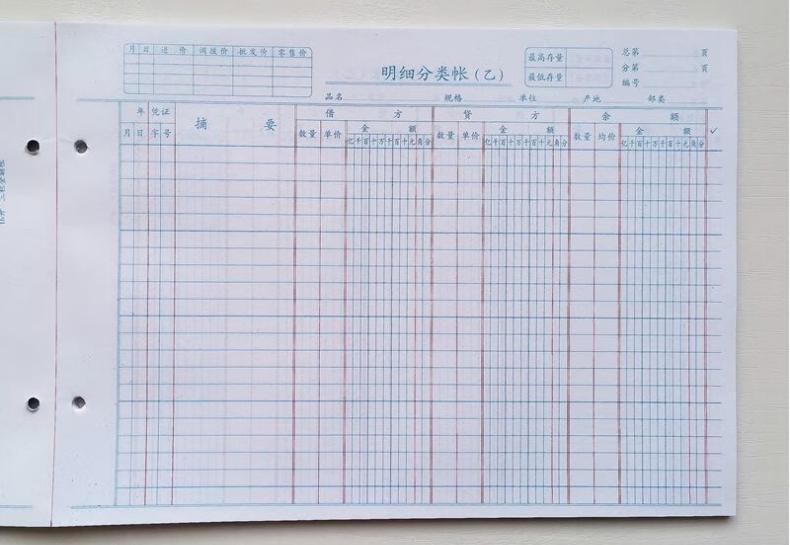 月 日 进 价 调拨价 批发价 零售价
明细分类帐(乙)
最高存量
最低存量
总第 页
分第 页
编号
品名 规格 单位 产地 部类
年 凭证 摘 要 借 方 贷 方 余 额 ✓
月 日 字 号 数量 单价 金 额 数量 单价 金 额 数量 均价 金 额
亿千百十万千百十元角分 亿千百十万千百十元角分 亿千百十万千百十元角分